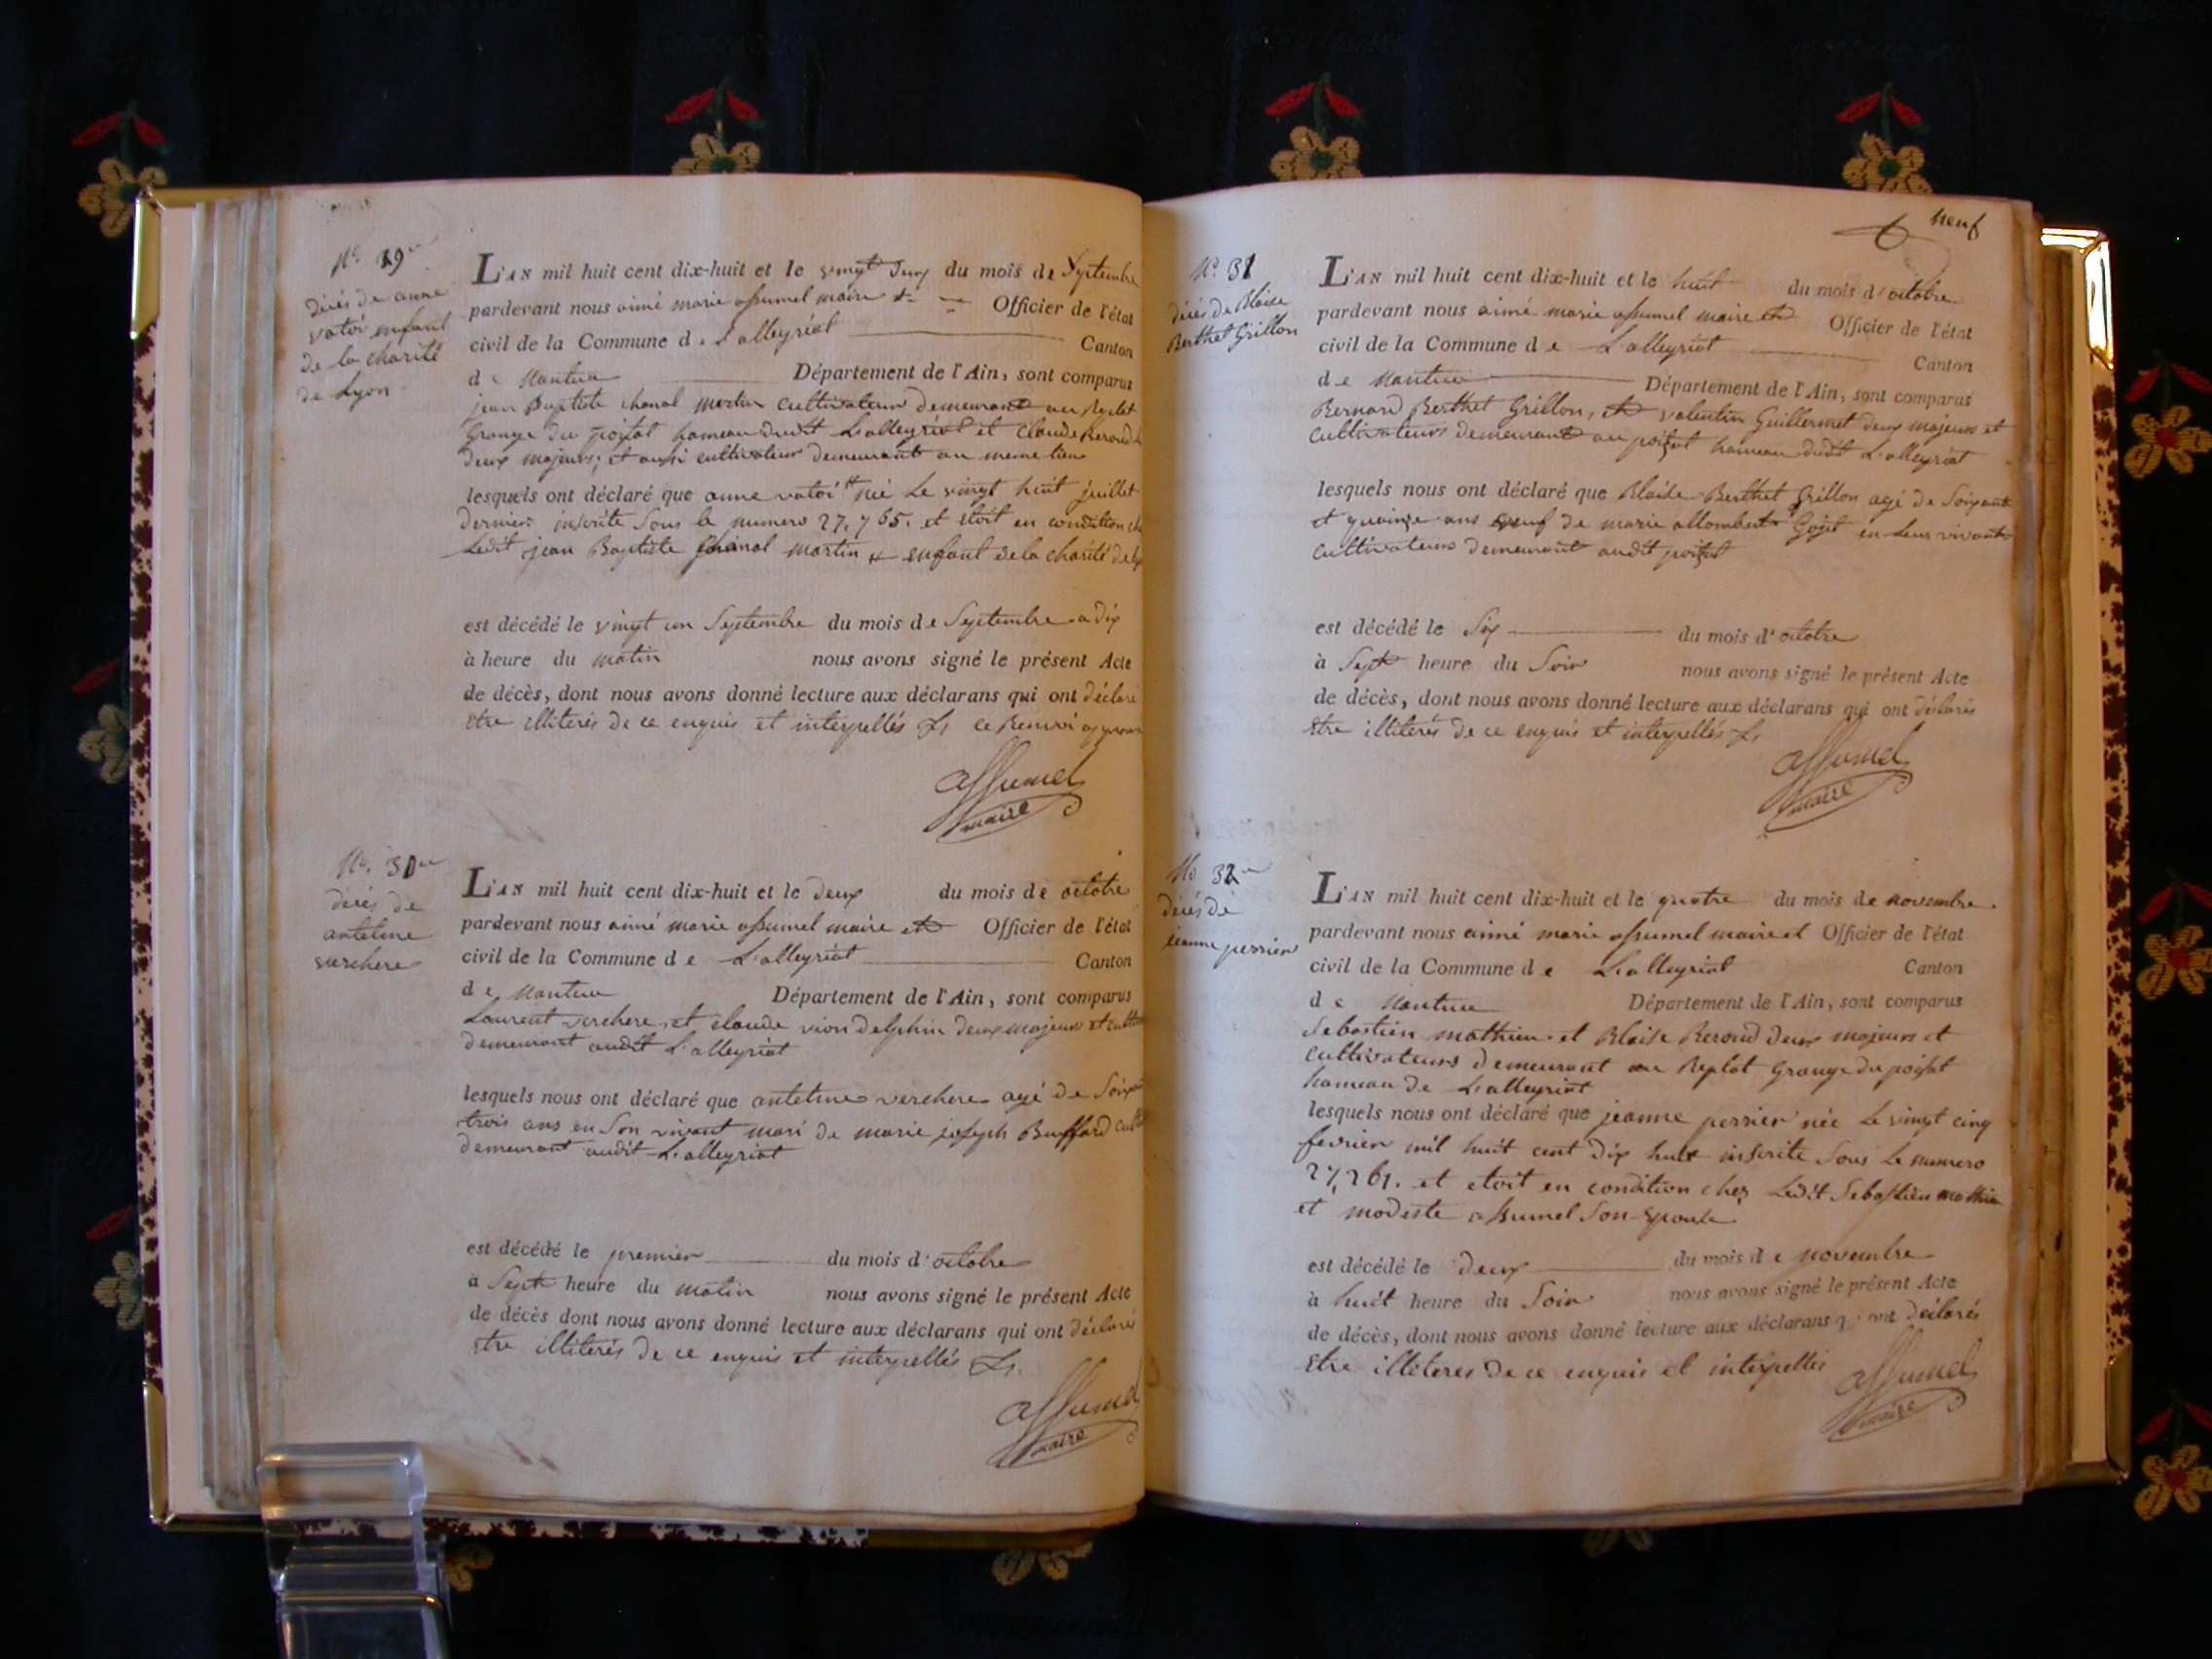 N° 29
décés de anne
vatoi enfant
de la charité
de Lyon
L'AN mil huit cent dix-huit et le vingt deux du mois de Septembre
pardevant nous aimé marie assumel maire et Officier de l'état
civil de la Commune de Lalleyriat Canton
de Nantua Département de l'Ain, sont comparus
jean Baptiste chanal martin cultivateur demeurant au Replat
Grange du poizat hameau dudit Lalleyriat et Claude Reroud
deux majeurs; et aussi cultivateur demeurant au meme lieu
lesquels ont déclaré que anne vatoi née Le vingt huit juillet
dernier inscrite Sous le numero 27,765. et etoit en condition
Ledit jean Baptiste chanal martin + enfant de la charité de
est décédé le vingt un Septembre du mois de Septembre a dix
à heure du matin nous avons signé le présent Acte
de décès, dont nous avons donné lecture aux déclarans qui ont déclaré
Etre illiterés de ce enquis et interpellés ce Renvoi
assumel
maire
N° 30
décés de
antelme
verchere
L'AN mil huit cent dix-huit et le deux du mois de octobre
pardevant nous aimé marie assumel maire et Officier de l'état
civil de la Commune de Lalleyriat Canton
de Nantua Département de l'Ain, sont comparus
Laurent verchere, et claude vion delphin deux majeurs et
demeurant audit Lalleyriat
lesquels nous ont déclaré que antelme verchere agé de
trois ans en Son vivant mari de marie joseph Buffard
demeurant audit Lalleyriat
est décédé le premier du mois d'octobre
à Sept heure du matin nous avons signé le présent Acte
de décès dont nous avons donné lecture aux déclarans qui ont déclarés
Etre illiterés de ce enquis et interpellés
assumel
maire
neuf
N° 31
décés de Blaise
Berthet Grillon
L'AN mil huit cent dix-huit et le huit du mois d'octobre
pardevant nous aimé marie assumel maire et Officier de l'état
civil de la Commune de Lalleyriat Canton
de Nantua Département de l'Ain, sont comparus
Bernard Berthet Grillon, et valentin Guillermet deux majeurs et
cultivateurs demeurant au poizat hameau dudit Lalleyriat
lesquels nous ont déclaré que Blaise Berthet Grillon agé de Soixante
et quainze ans veuf de marie allombert Gojet en leur vivant
cultivateurs demeurant audit poizat
est décédé le Six du mois d'octobre
à Sept heure du Soir nous avons signé le présent Acte
de décès, dont nous avons donné lecture aux déclarans qui ont déclarés
Etre illiterés de ce enquis et interpellés
assumel
maire
N° 32
décés de
jeanne perrier
L'AN mil huit cent dix-huit et le quatre du mois de novembre
pardevant nous aimé marie assumel maire et Officier de l'état
civil de la Commune de Lalleyriat Canton
de Nantua Département de l'Ain, sont comparus
Sebastien mathieu et Blaise Reroud deux majeurs et
cultivateurs demeurant au Replat Grange du poizat
hameau de Lalleyriat
lesquels nous ont déclaré que jeanne perrier née Le vingt cinq
fevrier mil huit cent dix huit inscrite Sous Le numero
27,261. et etoit en condition chez Ledit Sebastien mathieu
et modeste assumel Son Epouse
est décédé le deux du mois de novembre
à huit heure du Soir nous avons signé le présent Acte
de décès, dont nous avons donné lecture aux déclarans qui ont déclarés
Etre illiteres de ce enquis et interpellés
assumel
maire